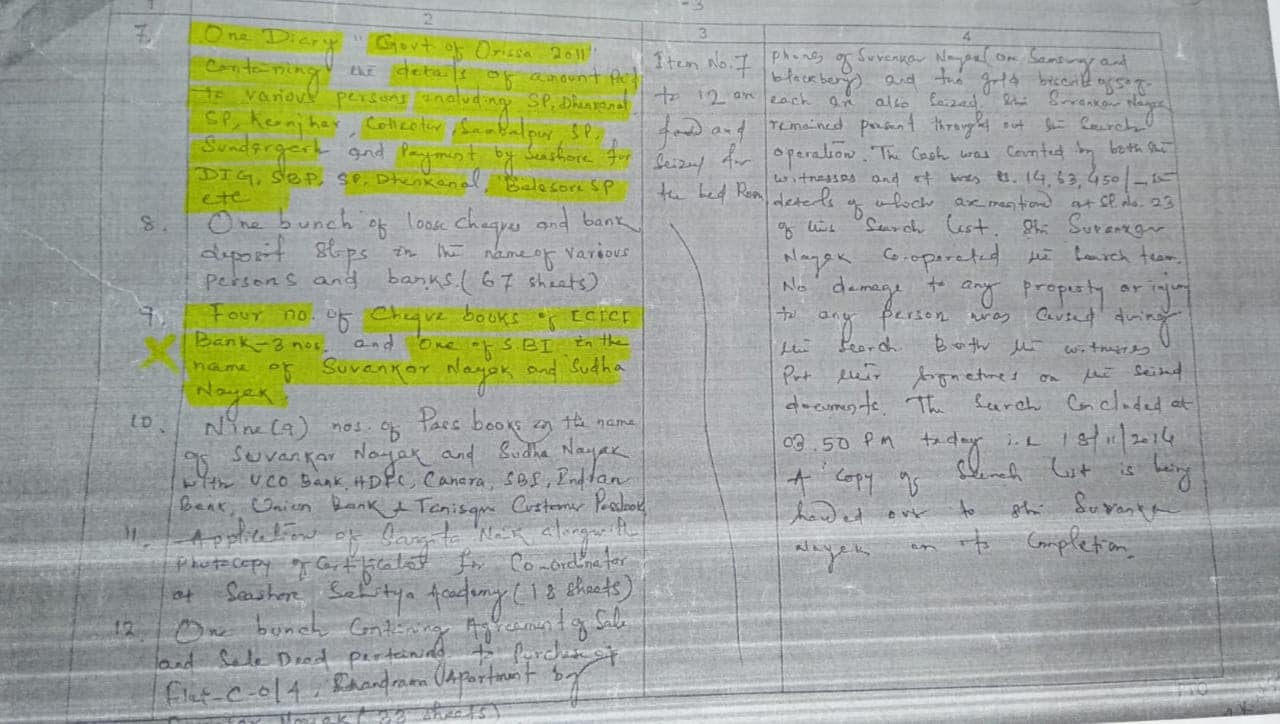 2
3
4
7. One Diary "Govt of Orissa 2011"
Containing the details of amount Paid
to various persons including SP, Dhenkanal
SP, Keonjhar, Collector, Sambalpur, SP,
Sundergerh and Payment by Seashore for
DIG, SBP, SP, Dhenkanal, Balesore SP
etc
8. One bunch of loose cheques and bank
deposit slips in the name of various
persons and banks. (67 sheets)
9. Four no. of Cheque books of ICICI
Bank-3 nos. and One of SBI in the
name of Suvankar Nayak and Sudha
Nayak
10. Nine (9) nos. of Pass books in the name
of Suvankar Nayak and Sudha Nayak
with UCO Bank, HDFC, Canara, SBI, Indian
Bank, Union Bank & Tanisqm Customer Passbook
11. Application of Sangita Naik alongwith
Photocopy of Certificates for Co-ordinator
at Seashore Sahitya Academy (18 sheets)
12. One bunch Containing Agreement of Sale
and Sale Deed pertaining to Purchase of
Flat-C-014, Chandrama Apartment by
Nayak (33 sheets)
Item No. 7
to 12 are
found and
Seized from
the bed Room
phones of Suvankar Nayak one Samsung and
blackberry) and two gold biscuits of 50g.
each are also Seized. Shri Suvankar Nayak
remained present through out the Search
operation. The Cash was Counted by both the
witnesses and it was Rs. 14,63,450/-
details of which are mention at Sl no. 23
of this Search list. Shri Suvankar
Nayak Co-operated the Search team.
No damage to any property or injury
to any person was Caused during
the Search. Both the witnesses
Put their signatures on the seized
documents. The Search Concluded at
03.50 PM today i.e 18/11/2014
A copy of Search list is being
handed over to Shri Suvankar
Nayak on its Completion.
PTO